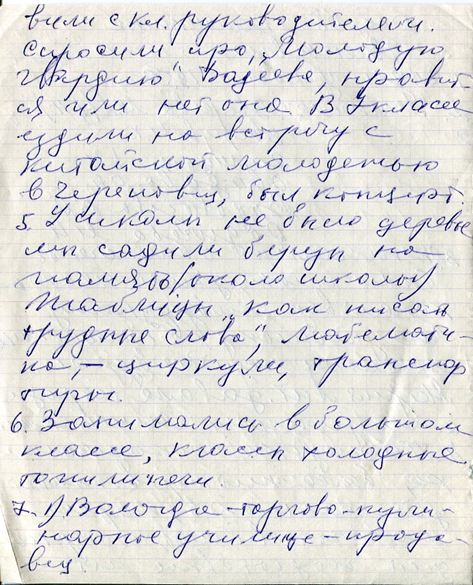 вили с кл. руководителем.
Спросили про „Молодую
гвардию" Фадеева, нравит-
ся или нет она. В 7 классе
ездили на встречу с
китайской молодежью
в Череповец, был концерт.
5. У школы не было деревьев
мы садили березы на
память (около школы)
Таблицы „Как писать
трудные слова", математи-
ка, – циркули, транспор
тиры.
6. Занимались в большом
классе, классы холодные
топили печи.
7. 1) Вологда – торгово-кули-
нарное училище – прода-
вец